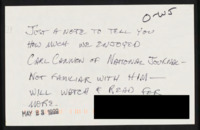 O-NWS
JUST A NOTE TO TELL YOU
HOW MUCH WE ENJOYED
CARL CANNON OF NATIONAL JOURNAL-
NOT FAMILIAR WITH HIM-
WILL WATCH & READ FOR
MORE.
MAY 23